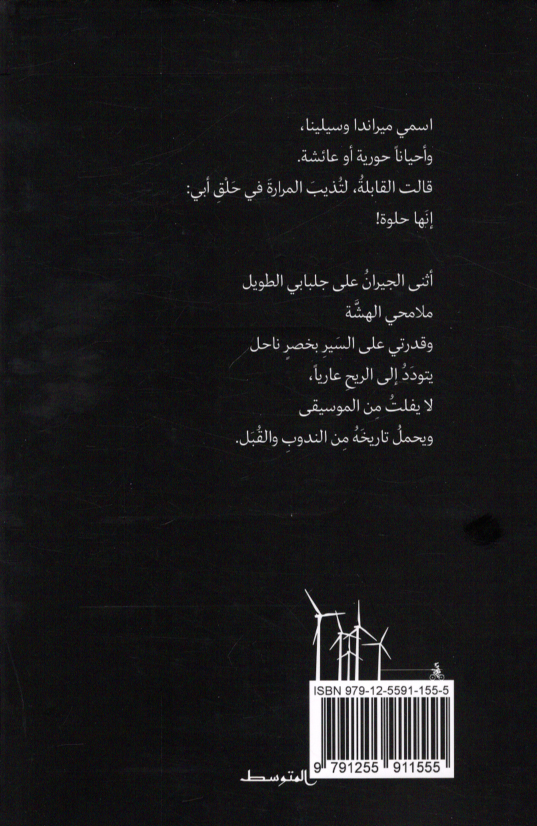 اسمي ميراندا وسيلينا،
وأحياناً حورية أو عائشة.
قالت القابلةُ، لتُذيبَ المرارةَ في حَلْقِ أبي:
إنَها حلوة!
أثنى الجيرانُ على جلبابي الطويل
ملامحي الهشَّة
وقدرتي على السَيرِ بخصرٍ ناحل
يتودَدُ إلى الريحِ عارياً،
لا يفلتُ مِن الموسيقى
ويحملُ تاريخَهُ مِن الندوبِ والقُبَل.
ISBN 979-12-5591-155-5
9 791255 911555
المتوسط